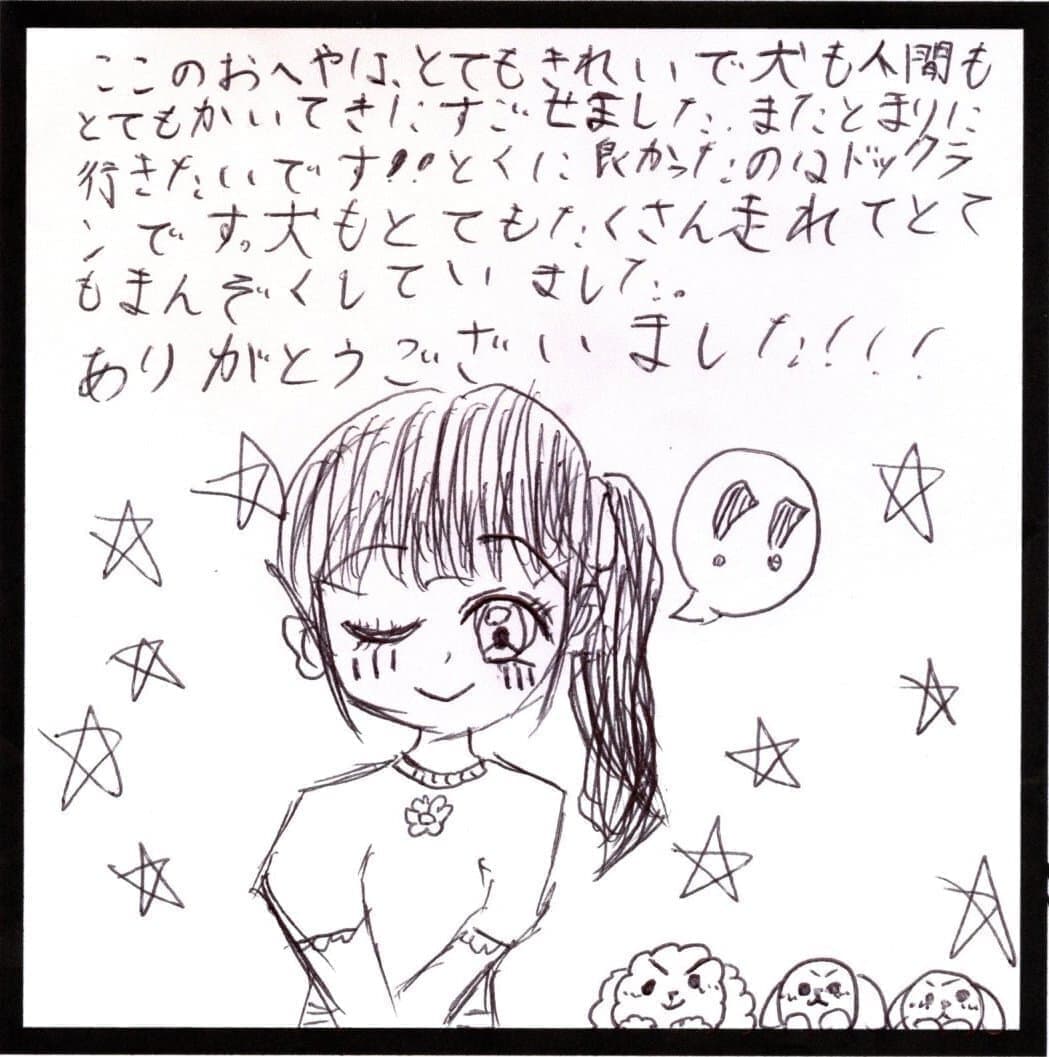 ここのおへやは、とてもきれいで犬も人間も
とてもかいてきにすごせました。またとまりに
行きたいです!!とくに良かったのはドックラ
ンです。犬もとてもたくさん走れてとて
もまんぞくしていました。
ありがとうございました!!!
!!